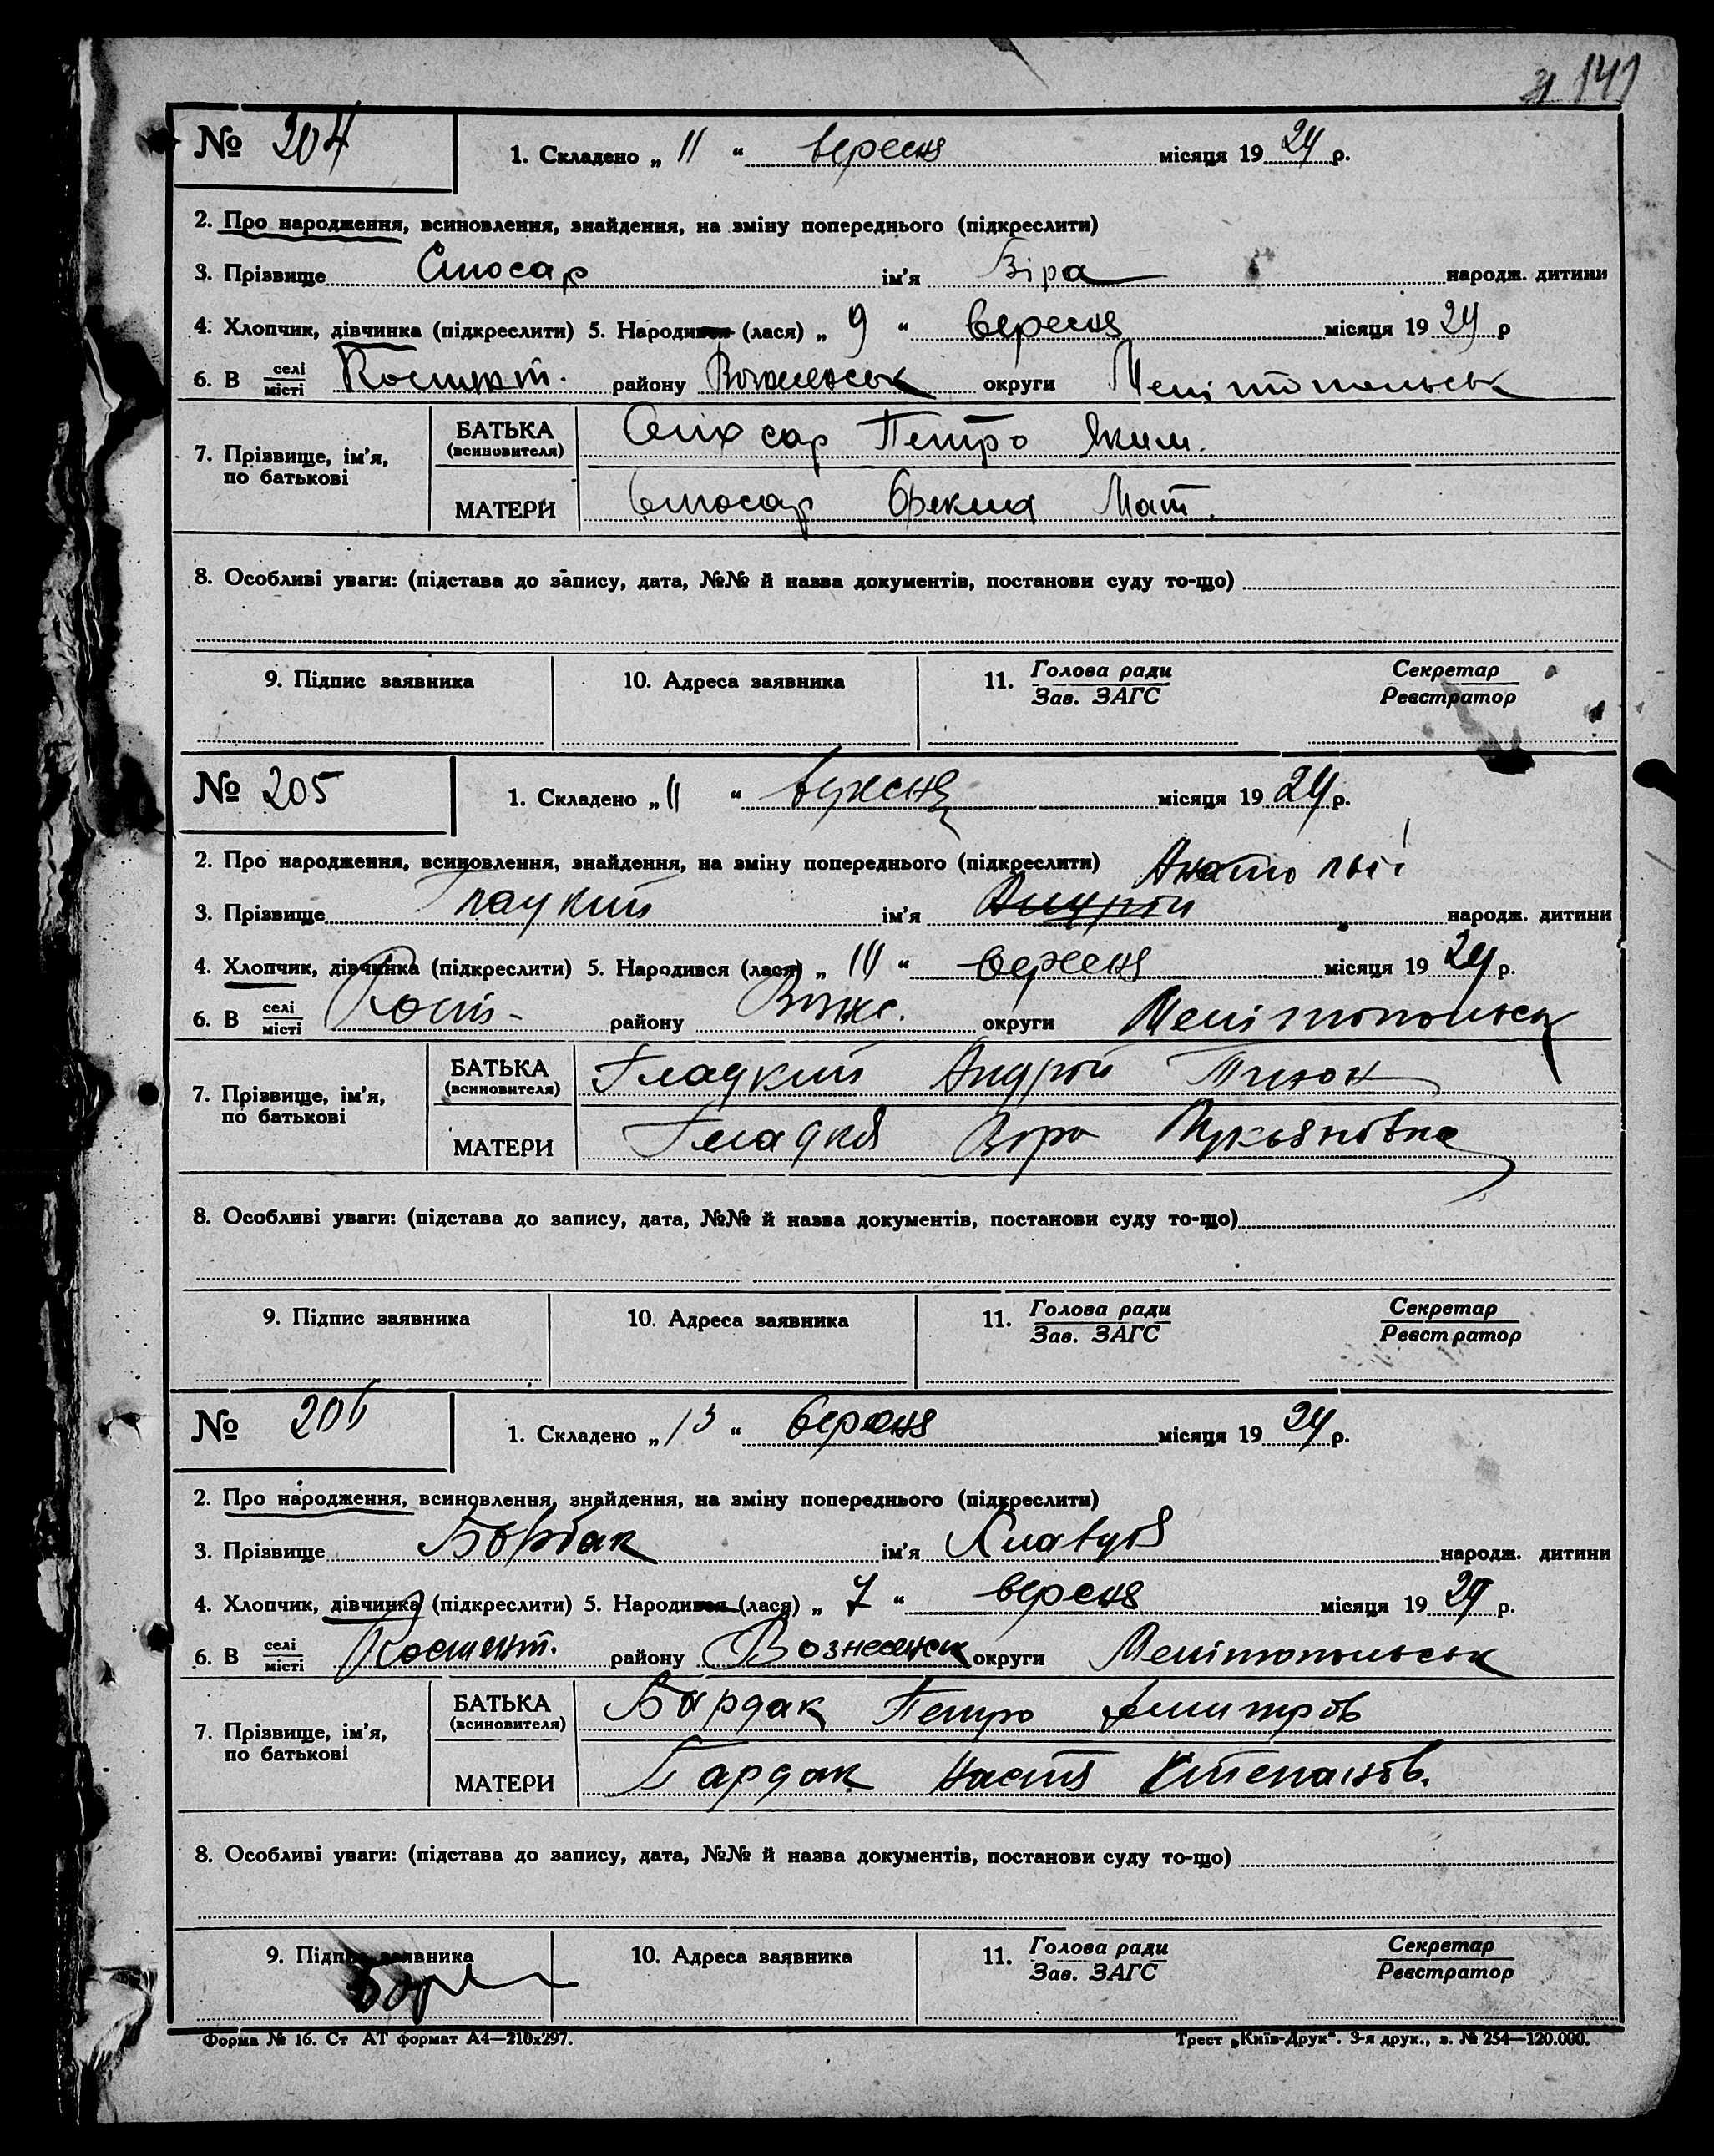 141
№ 204 1. Складено „ 11 “ вересня місяця 1924 р.
2. Про народження, всиновлення, знайдення, на зміну попереднього (підкреслити)
3. Прізвище ім'я Віра народж. дитини
4. Хлопчик, дівчинка (підкреслити) 5. Народився (лася) „ 9 “ вересня місяця 1924 р
6. В селі місті району округи Мелітопольськ
7. Прізвище, ім'я, по батькові
БАТЬКА (всиновителя) Петро Яким.
МАТЕРИ Мат.
8. Особливі уваги: (підстава до запису, дата, №№ й назва документів, постанови суду то-що)
9. Підпис заявника 10. Адреса заявника 11. Голова ради Зав. ЗАГС Секретар Реєстратор
№ 205 1. Складено „ 11 “ вересня місяця 1924 р.
2. Про народження, всиновлення, знайдення, на зміну попереднього (підкреслити) Анатолій
3. Прізвище Гладкий ім'я Андрій народж. дитини
4. Хлопчик, дівчинка (підкреслити) 5. Народився (лася) „ “ вересня місяця 1924 р.
6. В селі місті Кост- району Вознес. округи Мелітопольськ
7. Прізвище, ім'я, по батькові
БАТЬКА (всиновителя) Гладкий Андрій
МАТЕРИ Гладка Віра Лукьяновна
8. Особливі уваги: (підстава до запису, дата, №№ й назва документів, постанови суду то-що)
9. Підпис заявника 10. Адреса заявника 11. Голова ради Зав. ЗАГС Секретар Реєстратор
№ 206 1. Складено „ 13 “ вересня місяця 1924 р.
2. Про народження, всиновлення, знайдення, на зміну попереднього (підкреслити)
3. Прізвище ім'я Клавдія народж. дитини
4. Хлопчик, дівчинка (підкреслити) 5. Народився (лася) „ 7 “ вересня місяця 1924 р.
6. В селі місті Костянт. району Вознесенськ округи Мелітопольськ
7. Прізвище, ім'я, по батькові
БАТЬКА (всиновителя) Бардак Петро Дмитров
МАТЕРИ Бардак Настя Степанов.
8. Особливі уваги: (підстава до запису, дата, №№ й назва документів, постанови суду то-що)
9. Підпис заявника 10. Адреса заявника 11. Голова ради Зав. ЗАГС Секретар Реєстратор
Форма № 16. Ст АТ формат А4—210x297. Трест „Київ-Друк“. 3-я друк., з. № 254—120.000.